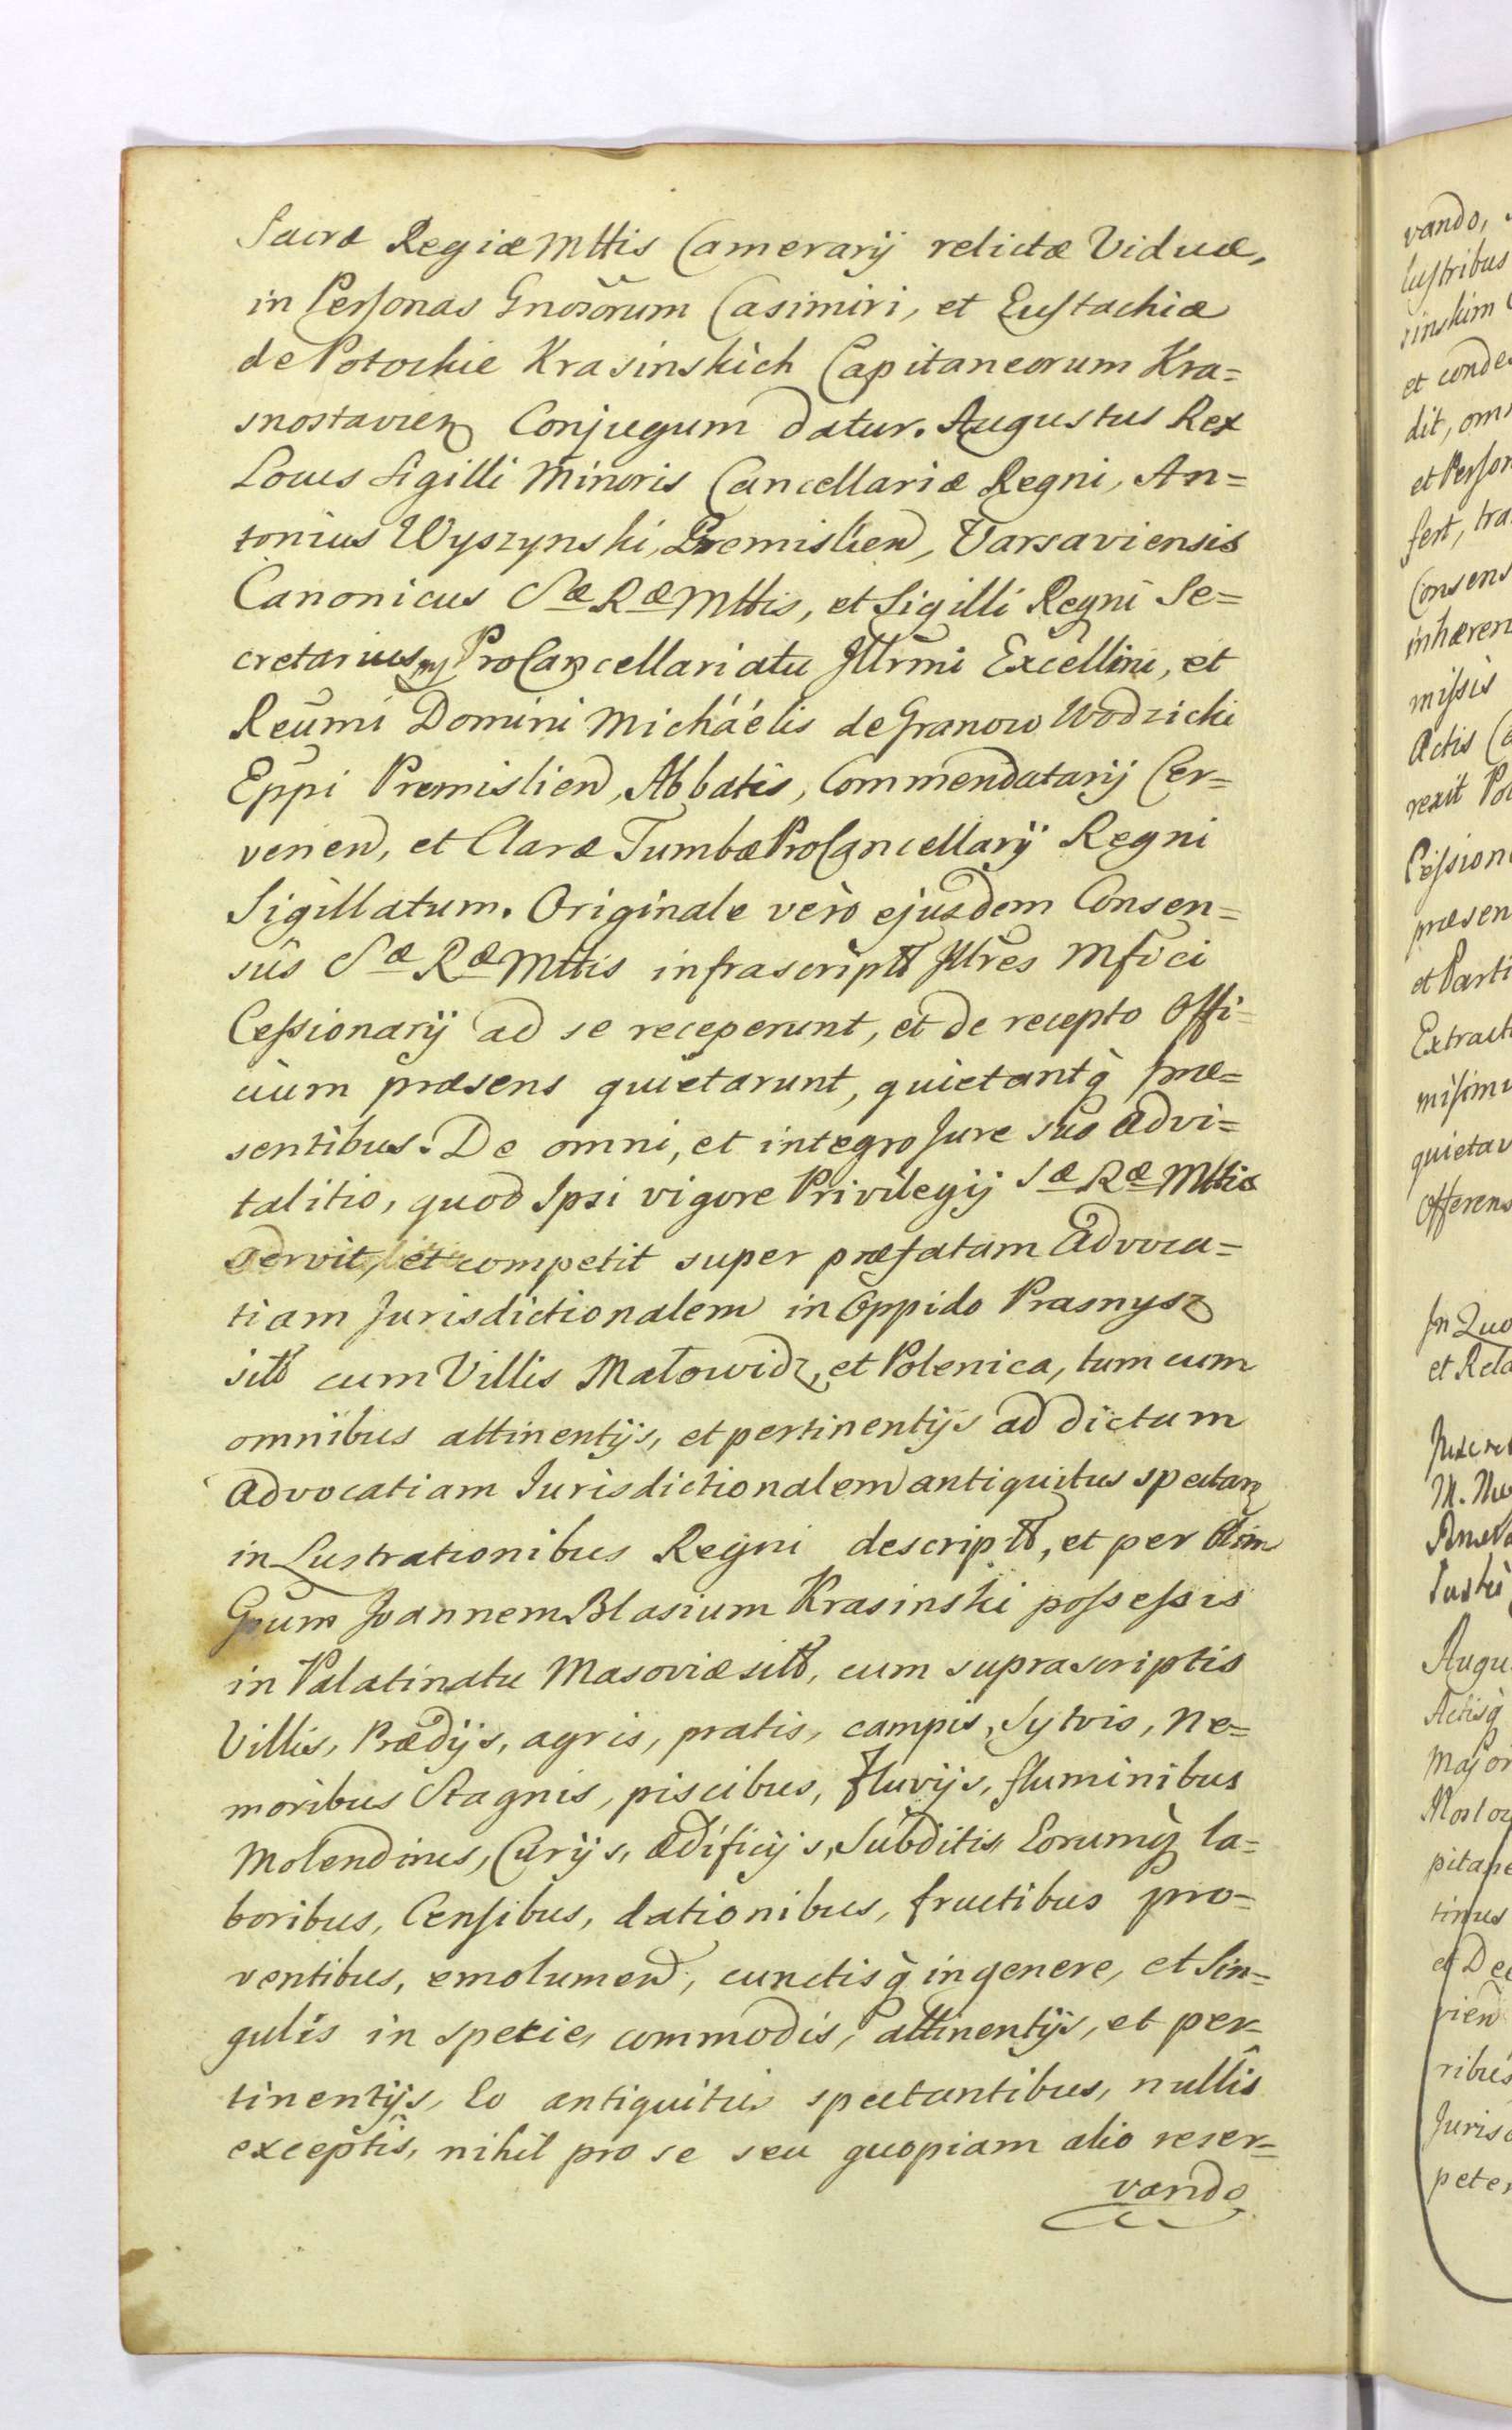 Sacræ Regiæ Mttis Camerarij relictæ Viduæ,
in Personas Gnosorum Casimiri, et Eustachiæ
de Potockie Krasinskich Capitaneorum Kra=
snostavien Conjugum datur. Augustus Rex
Locus Sigilli Minoris Cancellariæ Regni, An=
tonius Wyszynski, Premislien, Varsaviensis
Canonicus Sæ Ræ Mttis, et Sigilli Regni Se=
cretarius Procancellariatu Jllrmi Excellmi, et
Reumi Domini Micháélis de Granow Wodzicki
Eppi Premislien, Abbatis, Commendatarij Cer=
venen, et Claræ Tumbæ Procancellarij Regni
Sigillatum. Originale verò ejusdem Consen=
sûs Sæ Ræ Mttis infrascriptt Jllres Mfici
Cessionarij ad se receperunt, et de recepto Offi=
cium præsens quietarunt, quietantq præ=
sentibus. De omni, et integro Jure suo advi=
talitio, quod Ipsi vigore Privilegij Sæ Ræ Mttis
servit, et competit super præfatam Advoca=
tiam Jurisdictionalem in Oppido Prasnysz
sitt cum Villis Matowidz, et Polenica, tum cum
omnibus attinentijs, et pertinentijs ad dictam
Advocatiam Jurisdictionalem antiquitus spectan
in Lustrationibus Regni descriptt, et per Olim
Gsum Joannem Blasium Krasinski possessis
in Palatinatu Masoviæ sitt, cum suprascriptis
Villis, Prædijs, agris, pratis, campis, Sylvis, Ne=
moribus Stagnis, piscibus, Fluvijs, fluminibus
Molendinis, Curijs, ædificijs, Subditis Eorumq la=
boribus, Censibus, dationibus, fructibus pro=
ventibus, emolumen, cunctisq in genere, et Sin=
gulis in specie, commodis, attinentijs, et per=
tinentijs, Eo antiquitus spectantibus, nullis
exceptis, nihil pro se seu quopiam alio reser=
vando